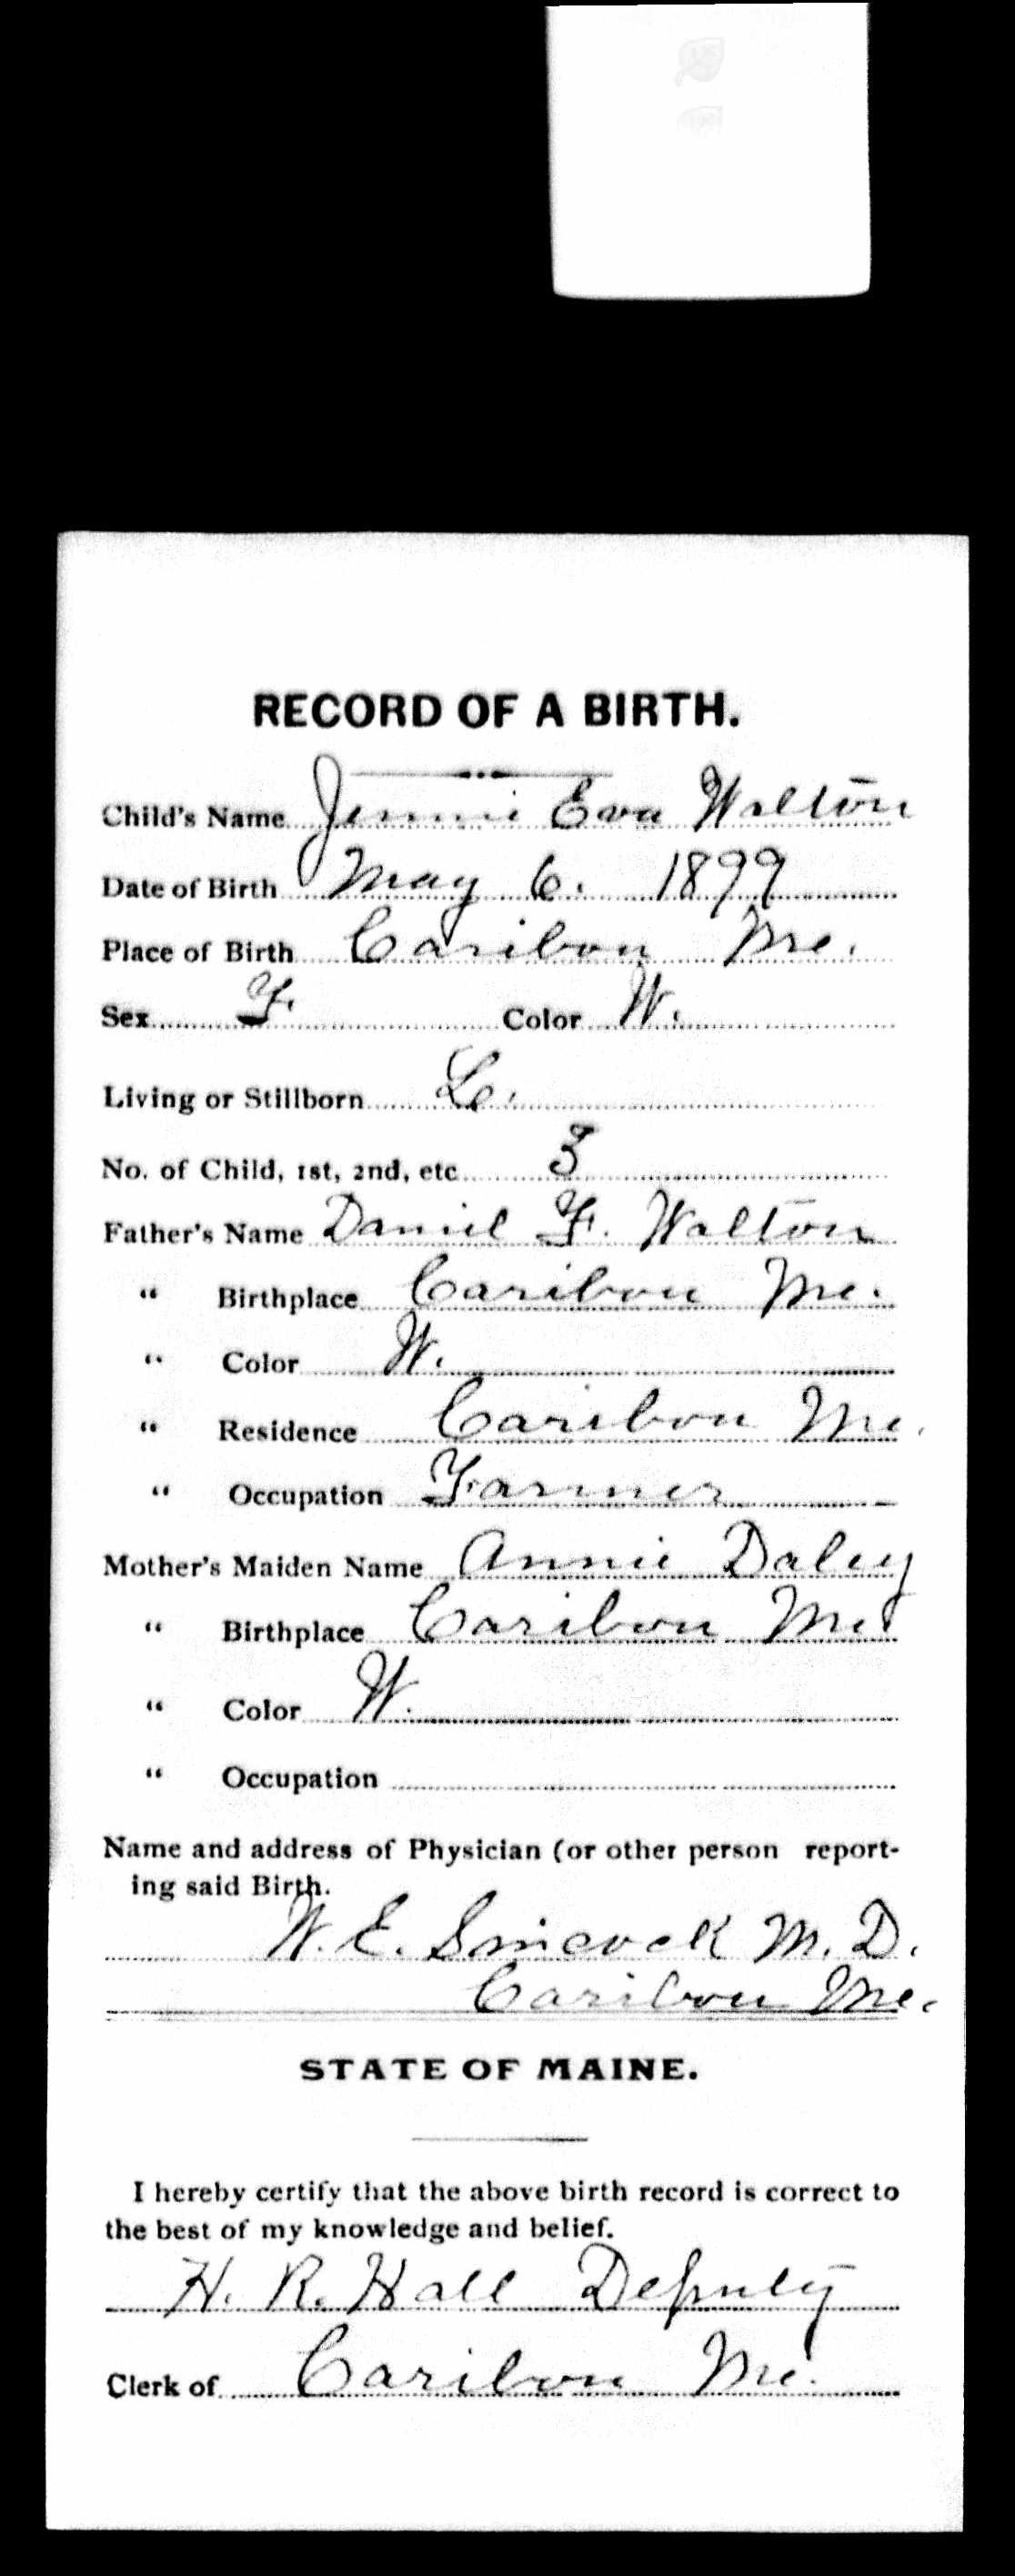 RECORD OF A BIRTH.
Child's Name Jennie Eva Walton
Date of Birth May 6. 1899
Place of Birth Caribou Me.
Sex F. Color W.
Living or Stillborn L.
No. of Child, 1st, 2nd, etc 3
Father's Name Daniel F. Walton
" Birthplace Caribou Me.
" Color W.
" Residence Caribou Me.
" Occupation Farmer
Mother's Maiden Name Annie Daley
" Birthplace Caribou Me
" Color W.
" Occupation
Name and address of Physician (or other person report-
ing said Birth.
W. E. Sincock M. D.
Caribou Me.
STATE OF MAINE.
I hereby certify that the above birth record is correct to
the best of my knowledge and belief.
H. R. Hall Deputy
Clerk of Caribou Me.